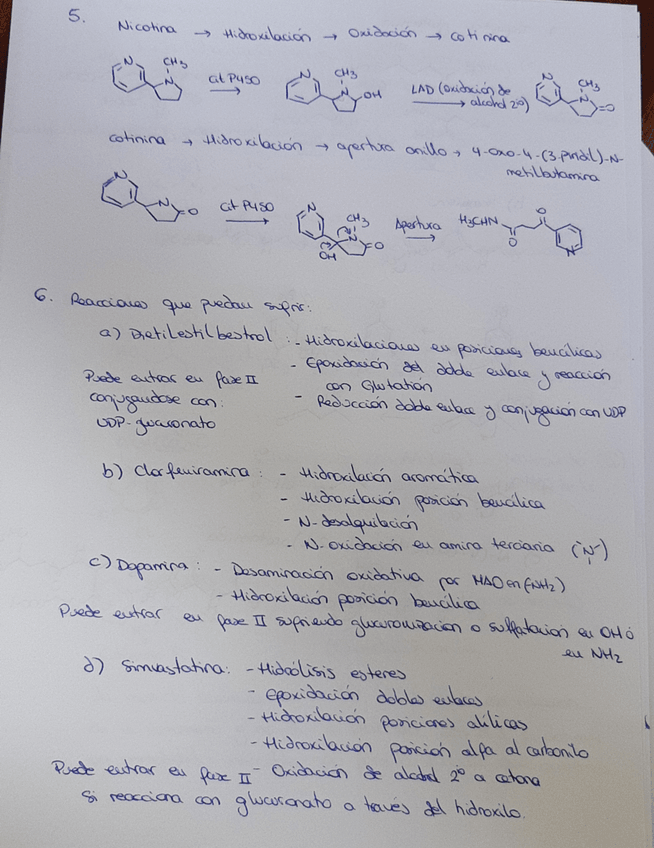 5.
Nicotina → Hidroxilación → Oxidación → cotinina
N CH3 N cit P450 → N CH3 N OH LAD (oxidación de alcohol 2º) → N CH3 N =O
cotinina → Hidroxilación → apertura anillo → 4-oxo-4-(3-piridil)-N-
metilbutamina
N N O cit P450 → N CH3 N O OH Apertura → H3CHN O O N
6. Reacciones que puedan sufrir:
a) Dietilestilbestrol : - Hidroxilaciones en posiciones bencílicas
- Epoxidación del doble enlace y reacción
con Glutatión
- Reducción doble enlace y conjugación con UDP
Puede entrar en fase II
conjugandose con:
UDP-glucuronato
b) Clorfeniramina : - Hidroxilación aromática
- Hidroxilación posición bencílica
- N-desalquilación
- N-oxidación en amina terciaria (N)
c) Dopamina : - Desaminación oxidativa por MAO en (NH2)
- Hidroxilación posición bencílica
Puede entrar en fase II sufriendo glucuronización o sulfatación en OH ó
en NH2
d) Simvastatina: - Hidrólisis esteres
- Epoxidación dobles enlaces
- Hidroxilación posiciones alílicas
- Hidroxilación posición alfa al carbonilo
- Oxidación de alcohol 2º a cetona
Puede entrar en fase II
si reacciona con glucuronato a través del hidroxilo.